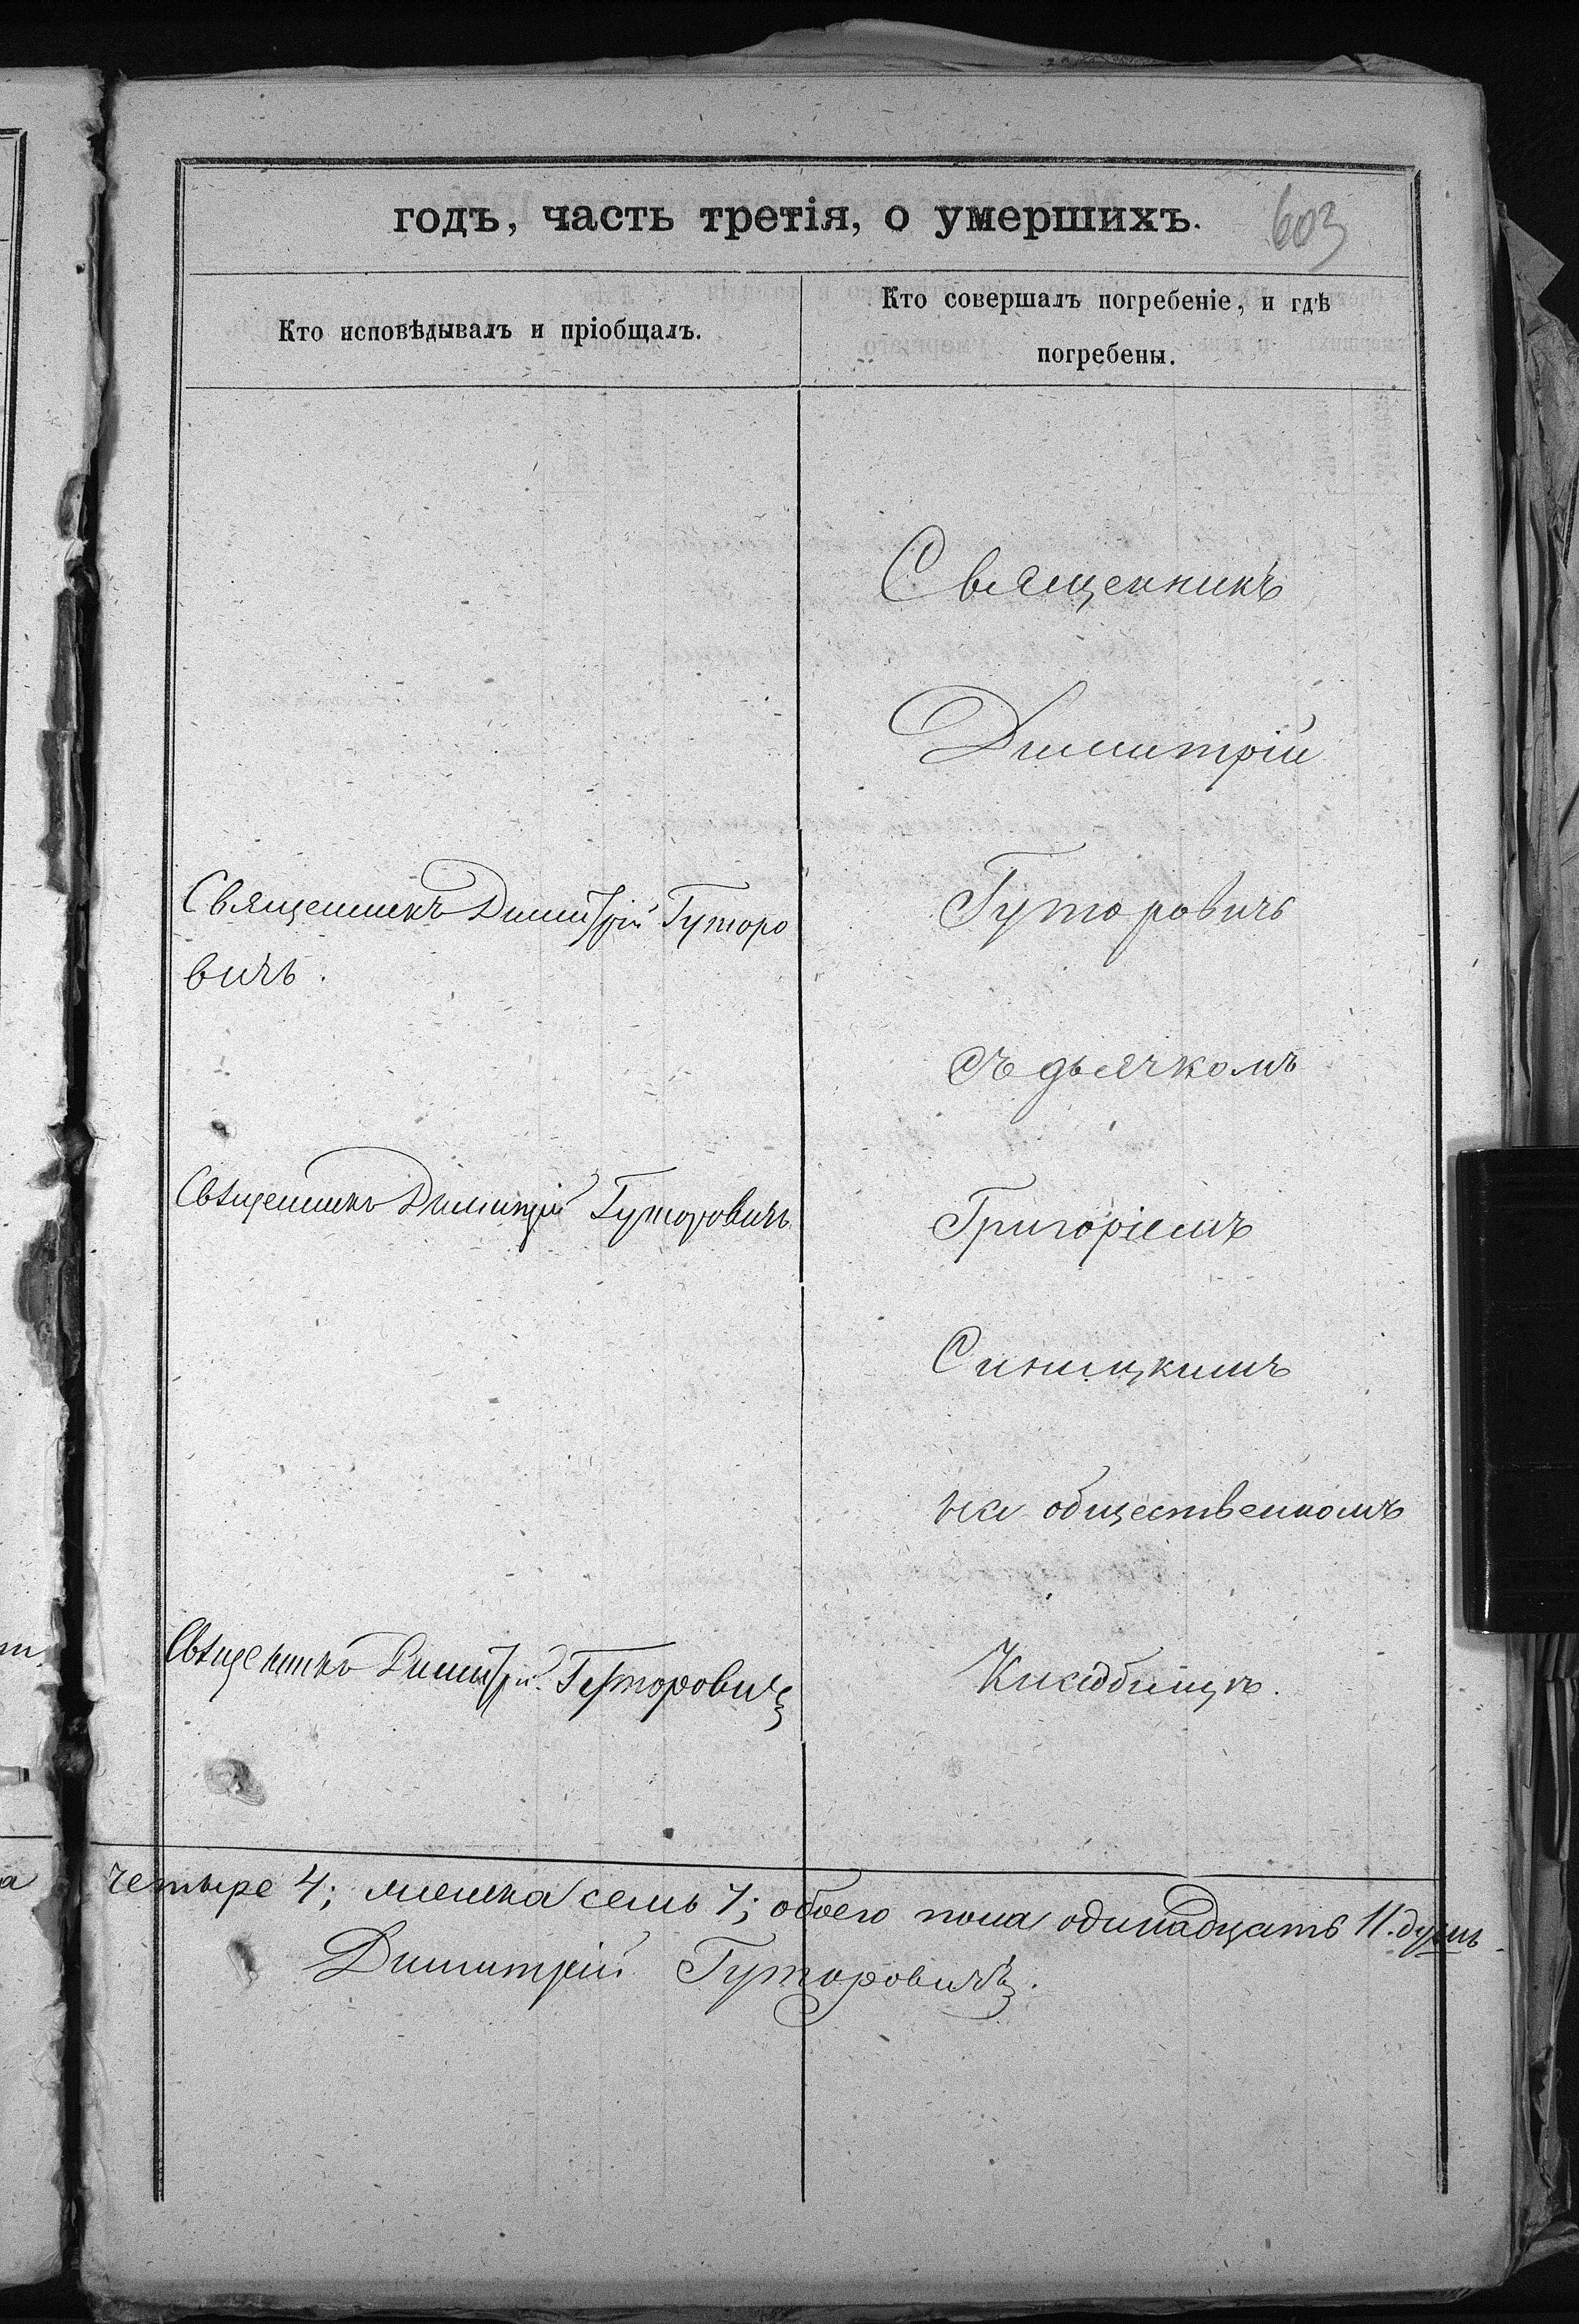 годъ, часть третія, о умершихъ.
603
Кто исповѣдывалъ и пріобщалъ.
Кто совершалъ погребеніе, и гдѣ
погребены.
Священникъ
Димитрій
Гуторовичъ
съ дьячкомъ
Григоріемъ
Синицкимъ
на общественномъ
Кладбищѣ.
Священникъ Димитрій Гуторо
вичъ.
Священникъ Димитрій Гуторовичъ
Священникъ Димитрій Гуторовичъ
четыре 4; женска семь 7; обоего пола одинадцать 11. душъ.
Димитрій Гуторовичъ.